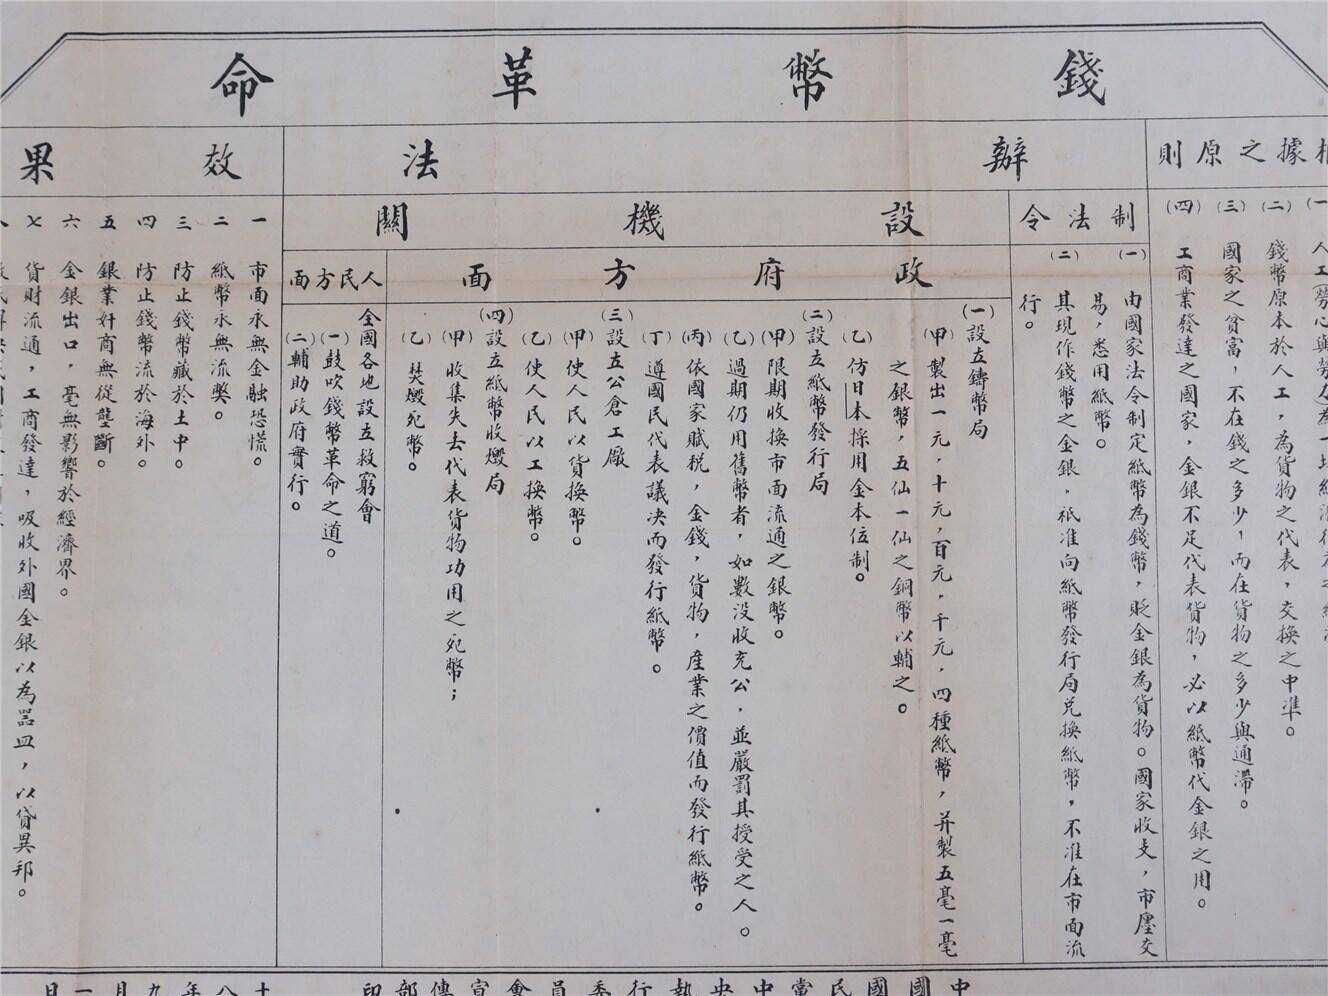 錢幣革命
據之原則
辦法
效果
制法令
設機關
政府方面
人民方面
(一)
(二)錢幣原本於人工,為貨物之代表,交換之中準。
(三)國家之貧富,不在錢之多少,而在貨物之多少與通滯。
(四)工商業發達之國家,金銀不足代表貨物,必以紙幣代金銀之用。
(一)由國家法令制定紙幣為錢幣,貶金銀為貨物。國家收支,市廛交
易,悉用紙幣。
(二)其現作錢幣之金銀,祇准向紙幣發行局兌換紙幣,不准在市面流
行。
(一)設立鑄幣局
(甲)製出一元,十元,百元,千元,四種紙幣,并製五毫一毫
之銀幣,五仙一仙之銅幣以輔之。
(乙)仿日本採用金本位制。
(二)設立紙幣發行局
(甲)限期收換市面流通之銀幣。
(乙)過期仍用舊幣者,如數沒收充公,並嚴罰其授受之人。
(丙)依國家賦稅,金錢,貨物,產業之價值而發行紙幣。
(丁)遵國民代表議決而發行紙幣。
(三)設立公倉工廠
(甲)使人民以貨換幣。
(乙)使人民以工換幣。
(四)設立紙幣收燬局
(甲)收集失去代表貨物功用之死幣;
(乙)焚燬死幣。
全國各地設立救窮會
(一)鼓吹錢幣革命之道。
(二)輔助政府實行。
一 市面永無金融恐慌。
二 紙幣永無流獘。
三 防止錢幣藏於土中。
四 防止錢幣流於海外。
五 銀業奸商無從壟斷。
六 金銀出口,毫無影響於經濟界。
七 貨財流通,工商發達,吸收外國金銀以為器皿,以貸異邦。
中國國民黨中央執行委員會宣傳部印
十八年九月一日